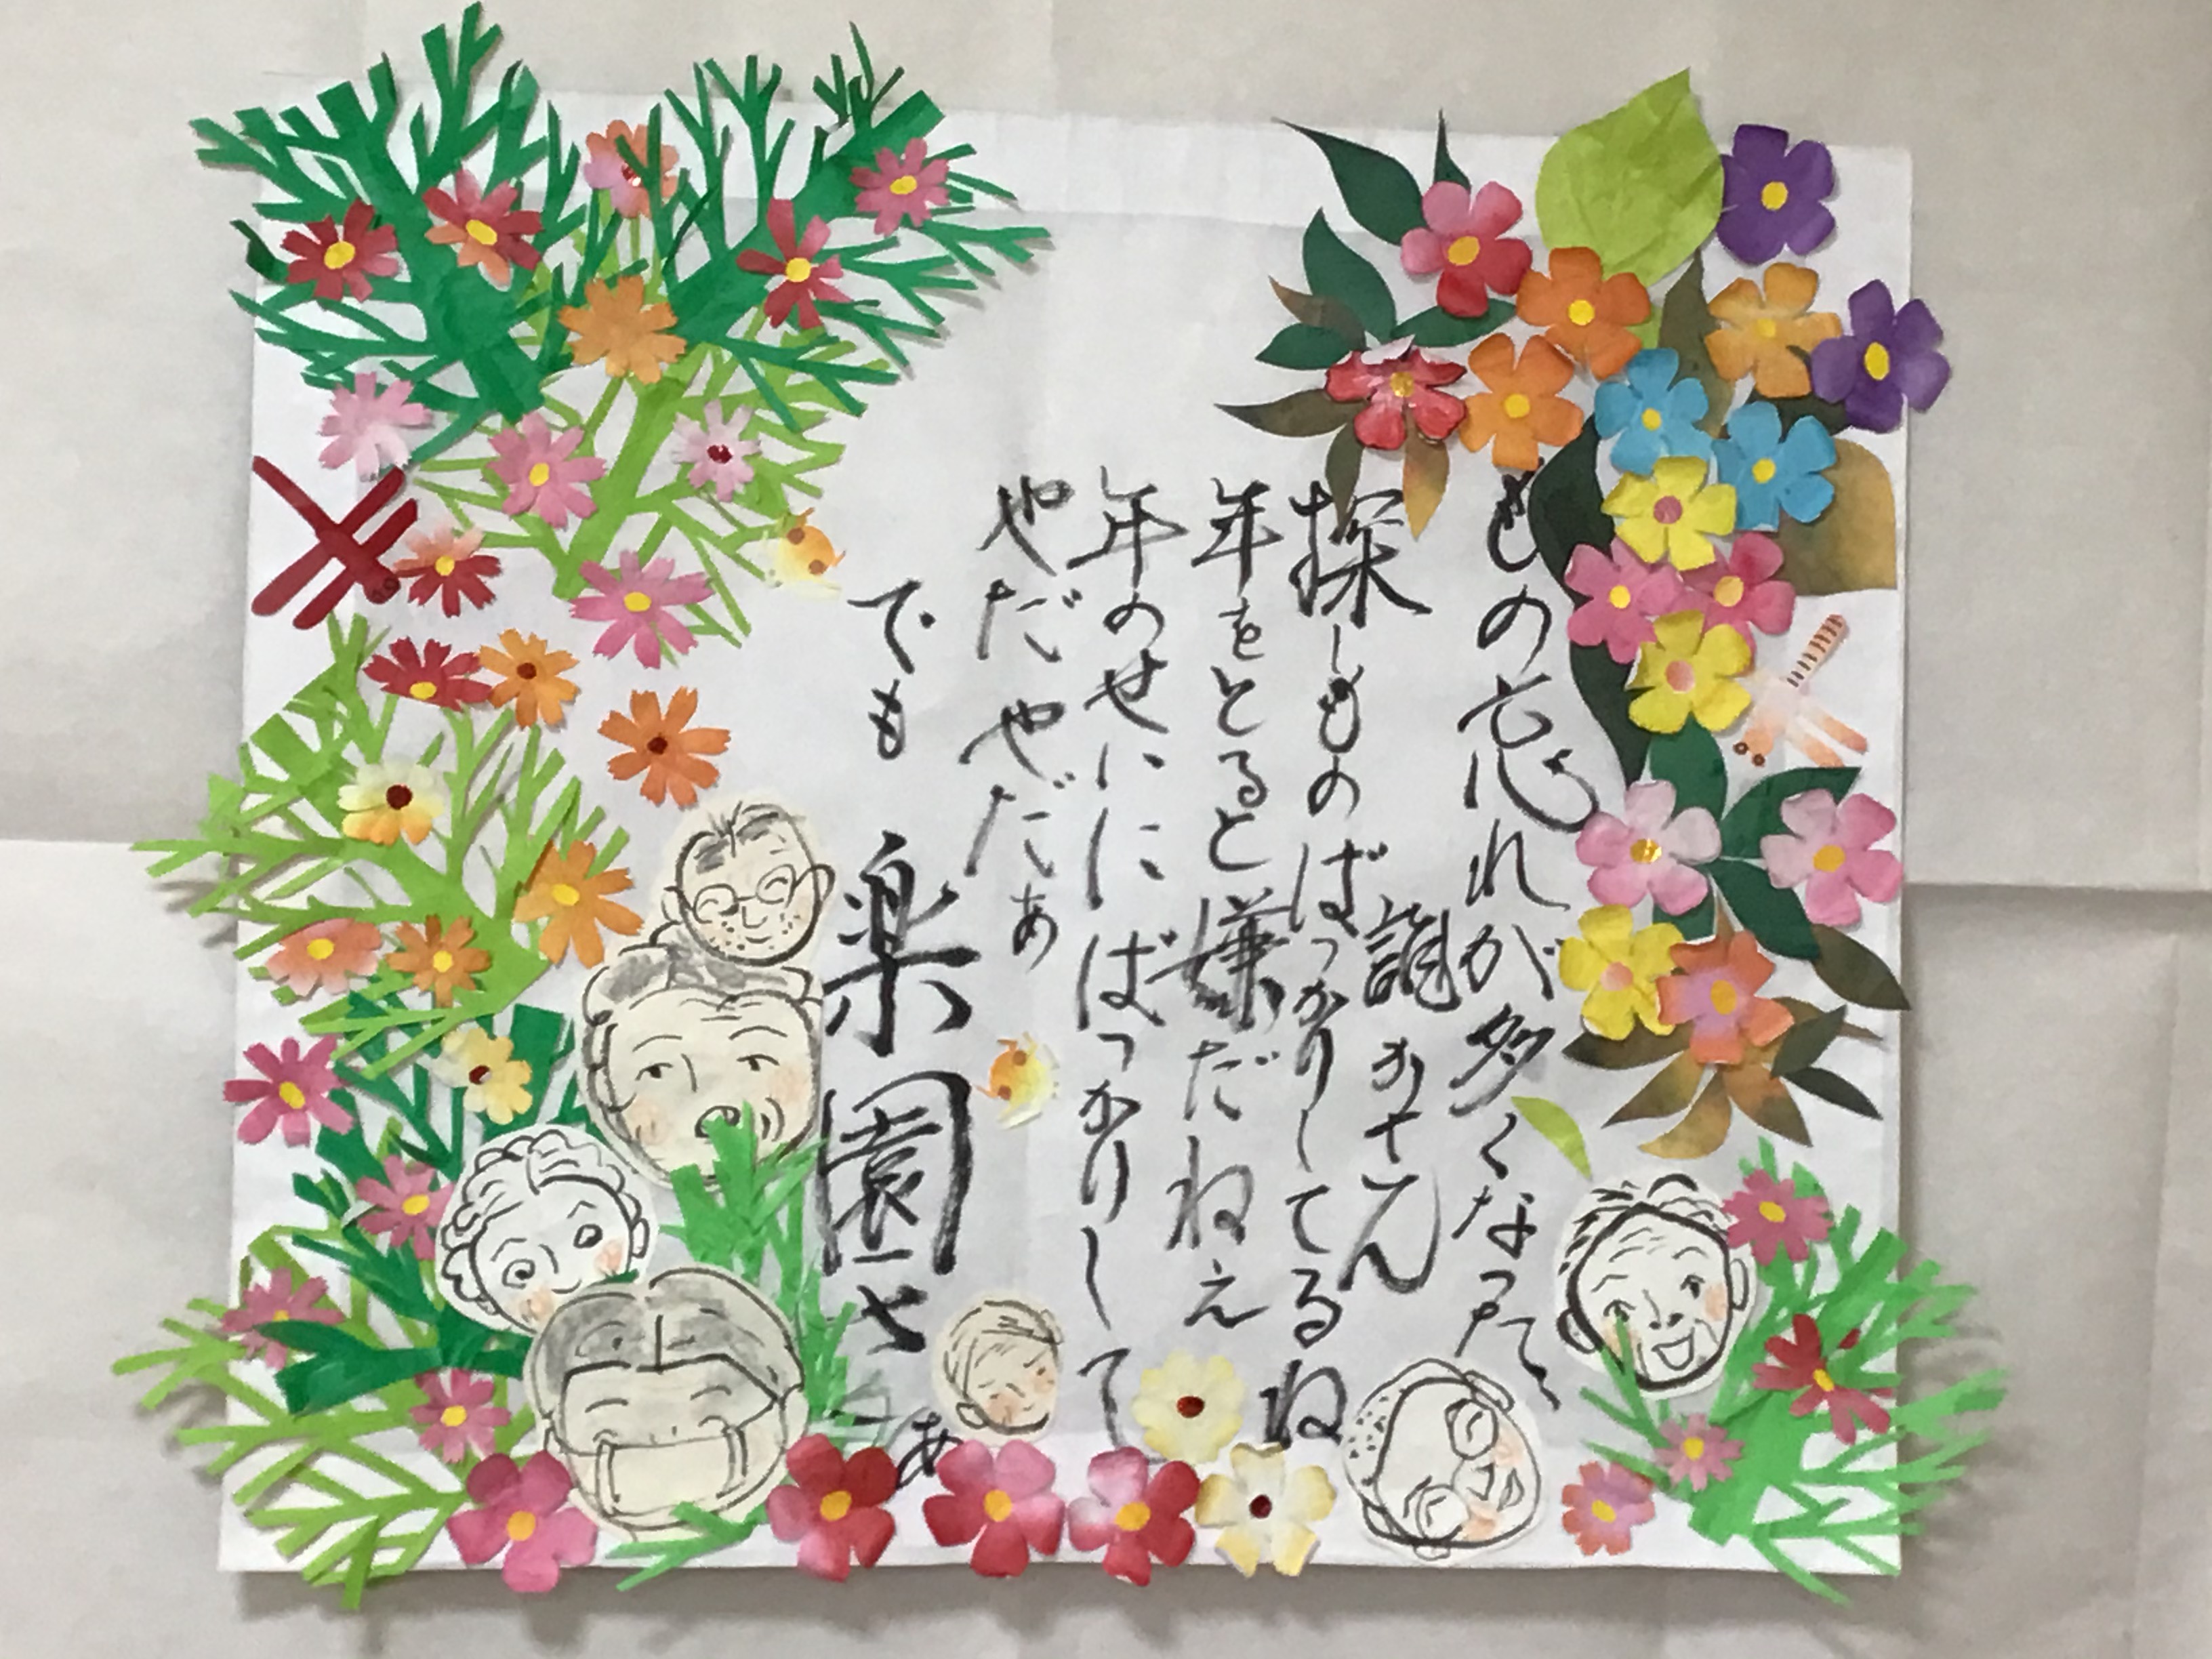 もの忘れが多くなった
誰かさん
探しものばっかりしてるね
年をとると嫌だねえ
年のせいにばっかりして
やだやだぁ
でも 楽園さぁ